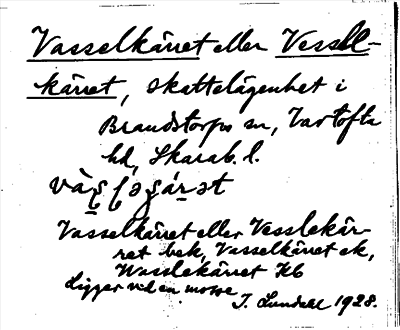 Vasselkärret eller Vessel-
kärret, skattelägenhet i
Brandstorps sn, Vartofta
hd, Skarab. l.
Vasselkärret eller Vesslekär-
ret bek, Vasselkäret ek,
Wasslekärret Kb
Ligger vid en mosse
J. Lundell 1928.